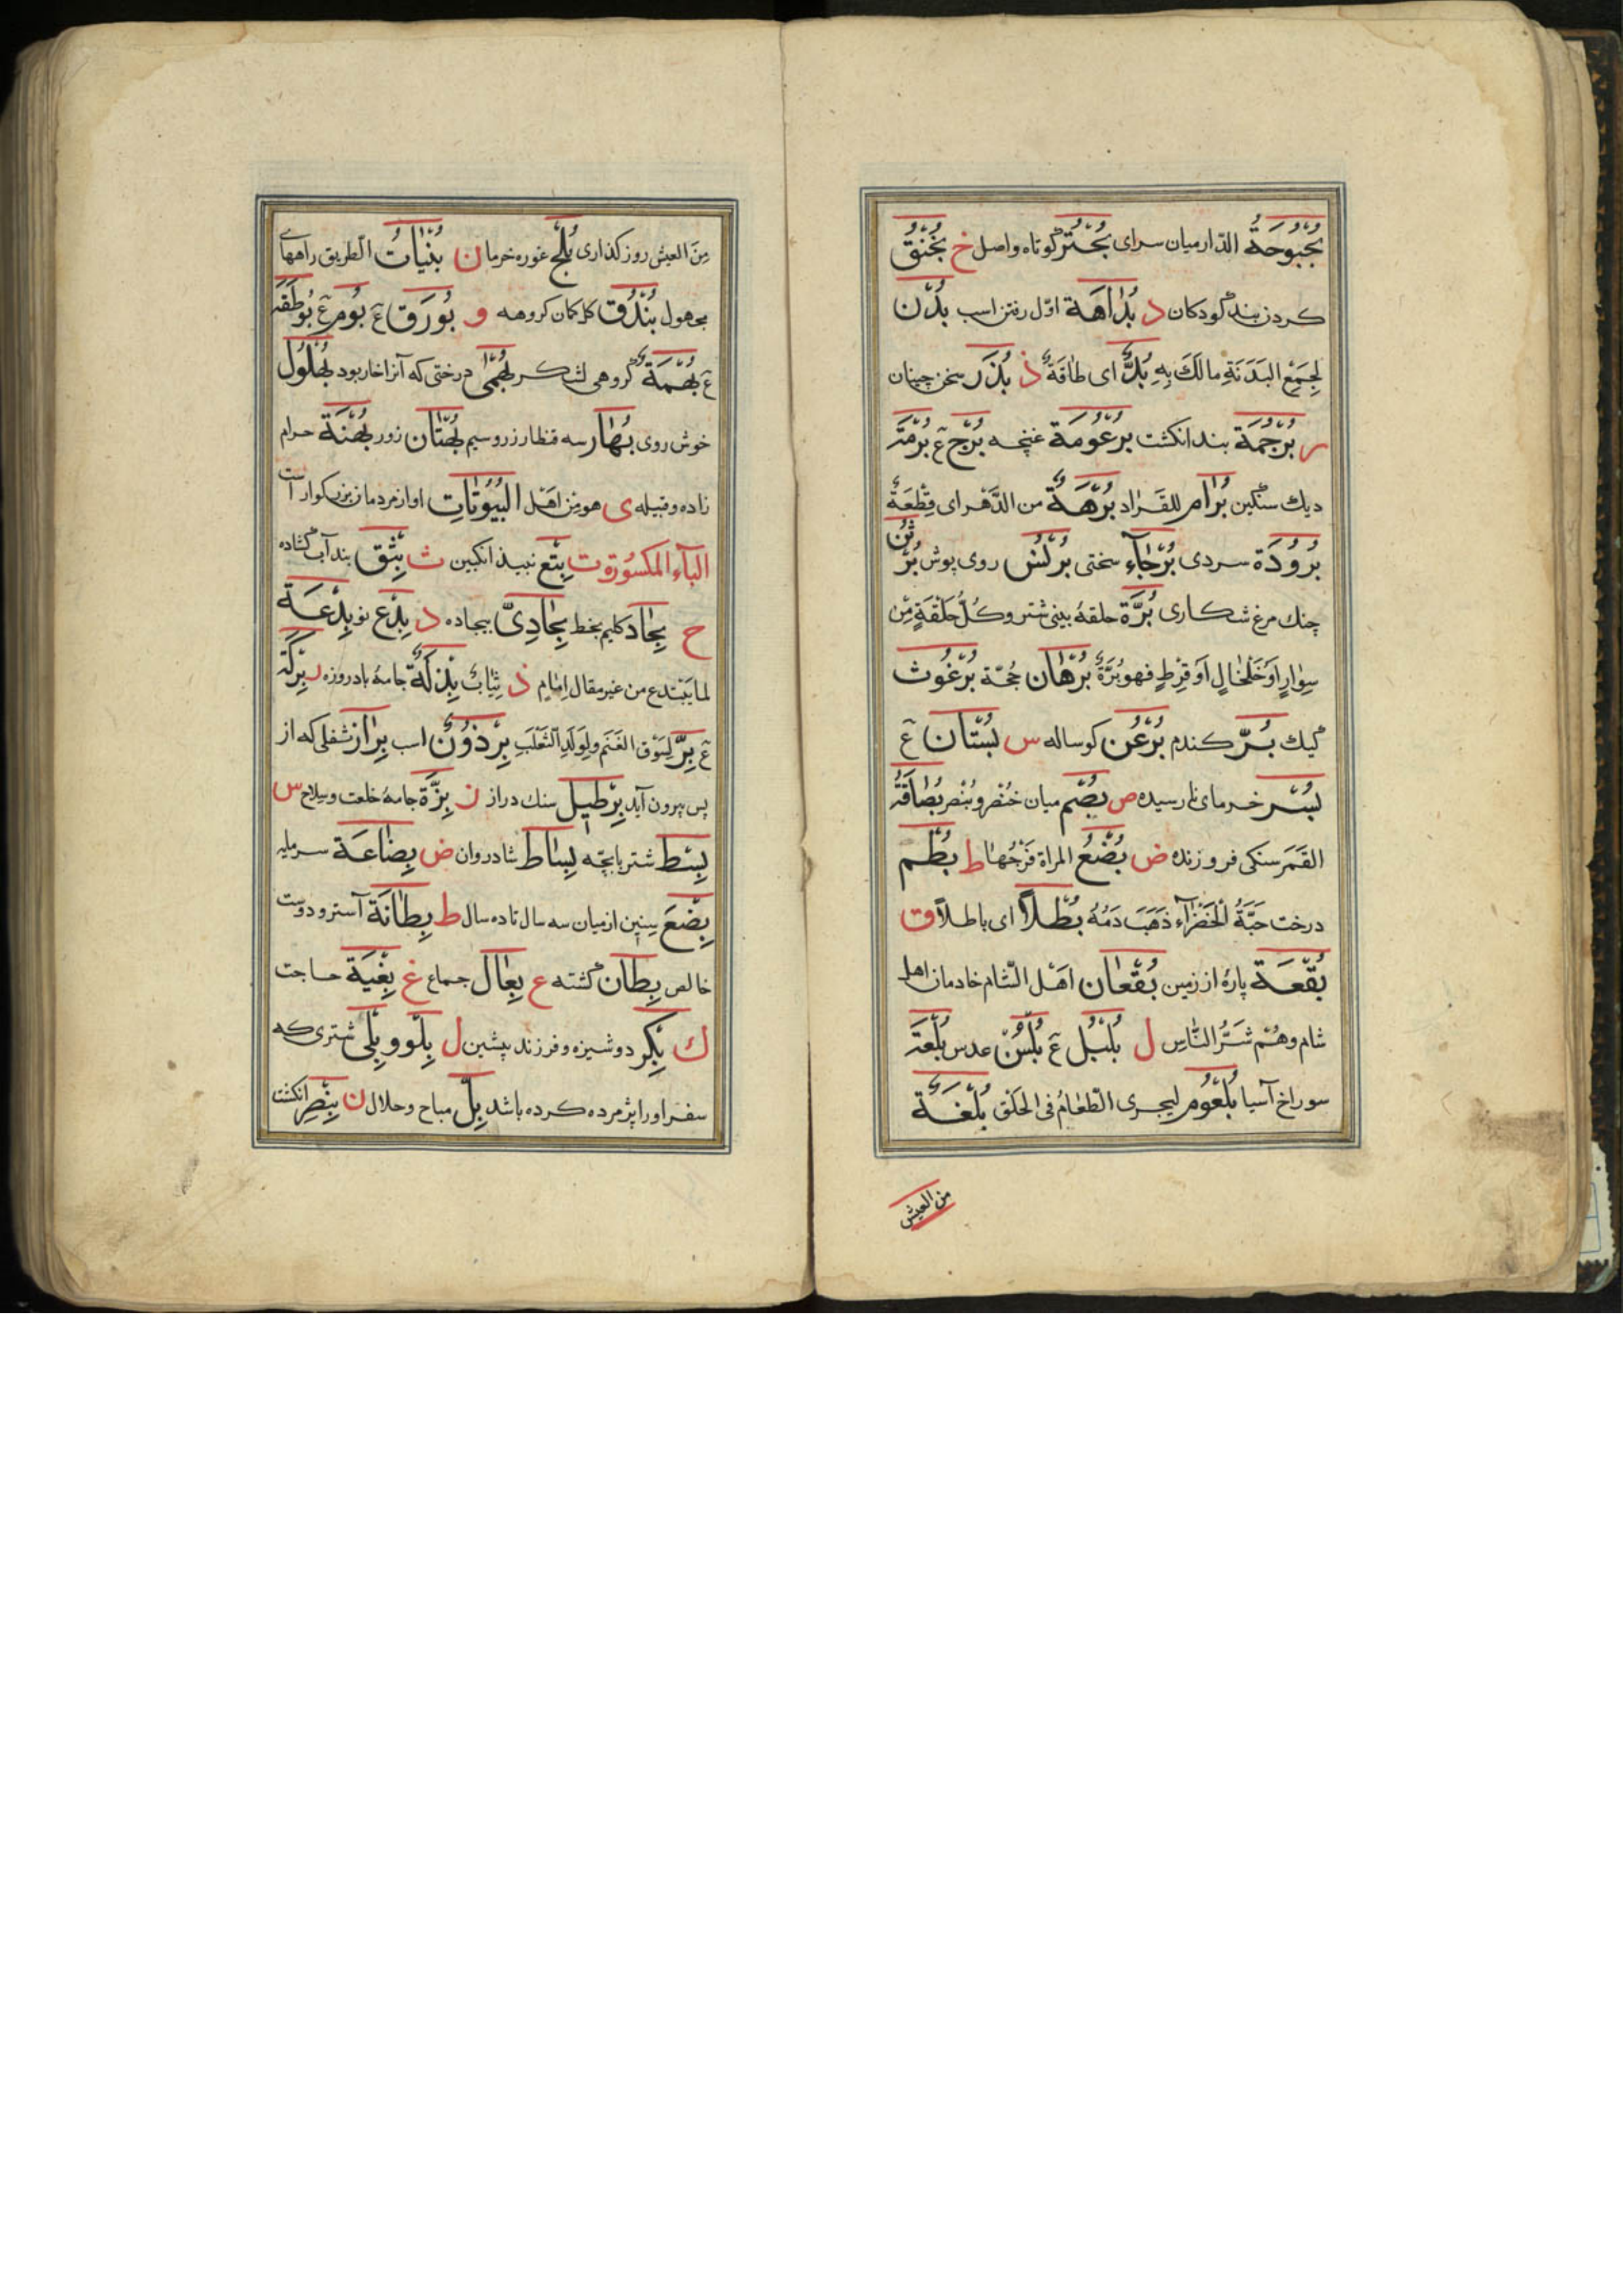 بُحْبُوحَةُ الدّار ميان سراى بُحْتُر كوتاه واصل خ بُخْنُقُ
كردن بند كودكان د بُدٰاهَة اوّل رفتن اسب بُدْن
لِجَمْعِ البَدَنَةِ مالَكَ بِهِ بُدٌّ اى طاقَةٌ ذ بُذَر سخن چينان
ر بُرْجُمَة بند انكشت بُرْعُومَة غنچه بُرْج ع بُرْمَة
ديك سنگين بُرٰام للقُراد بُرْهَةٌ من الدَّهر اى قِطْعَةٌ
بُرُودَة سردى بُرَحٰآء سختى بُرْنُس روى پوش بُرْثُن
چنك مرغ شكارى بُرَّة حلقهٔ بينى شتر وكُلُّ حَلْقَةٍ مِنْ
سِوٰارٍ اَوْ خَلْخٰالٍ اَوْ قُرْطٍ فهو بُرَّةٌ بُرْهٰان حُجّة بُرْغُوث
كيك بُرّ كندم بُرْغُن كوساله س بُسْتٰان ع
بُسْر خرماى نارسيده ص بُصْم ميان خُنْصر و بُنْصر بُصٰاقَةُ
القَمَر سنكى فروزنده ض بُضْعُ المراة فَرْجُهٰا ط بُطْم
درخت حَبَّةُ الْخَضْرٰآء ذَهَبَ دَمُهُ بُطْلاً اى باطلاً ق
بُقْعَة پارهٔ از زمين بُقْعٰان اَهْل الشّام خادمان اهل
شام وهُمْ شَرُّ النّٰاسِ ل بُلْبُل ع بُلْسُنْ عدس بُلْعَة
سوراخ آسيا بُلْعُوم ليجرى الطّعٰامُ فى الحَلق بُلْغَةٌ
من العيش
مِنَ العيش روز كذارى بُلَح غوره خرما ن بُنَيّٰاتُ الطريق راههاى
مجهول بُنْدُق كل كمان كروهه و بُورَق ع بُوم ع بُوطَقَة
ع بُهْمَةٌ گروهى لشكر بُهْمٰى درختى كه آنرا خار بود بُهْلُول
خوش روى بُهٰار سه قنطار زر وسيم بُهْتٰان زور بُهْثَة حرام
زاده وقبيله ى هو مِنْ اَهْل البُيُوتٰاتِ او از مردمان بزركوار است
البآء المكسُورة ت بِتْع نبيذ انكبين ث بِثْق بند آب گشاده
ح بِجٰاد كليم بخط بِجٰادِىّ بيجاده د بِدْع نو بِدْعَة
لما يَبْتَدع من غير مقال اِمٰامٍ ذ ثِيٰابُ بِذْلَةٌ جامهٔ بادروزه ر بِرْكَة
ع بِرٌّ لِسَوْق الغَنَم ولِوَلَدِ الثَّعْلَب بِرْذَوْنٌ اسب بِرٰاز ثفلى كه از
پس بيرون آيد بِرْطيل سنك دراز ز بِزَّة جامهٔ خلعت وسِلاح س
بِسْط شتر بابچّه بِسٰاط شادروان ض بِضٰاعَة سرمايه
بِضْعَ سِنين از ميان سه سال تا ده سال ط بِطٰانَة آستر ودوست
خالص بِطٰان گشته ع بِعٰال جماع غ بِغْيَة حاجت
ك بِكْر دوشيزه وفرزند پيشين ل بِلْو وبِلْى شترى كه
سفر او را پژمرده كرده باشد بِلّ مباح وحلال ن بِنْصِر انكشت